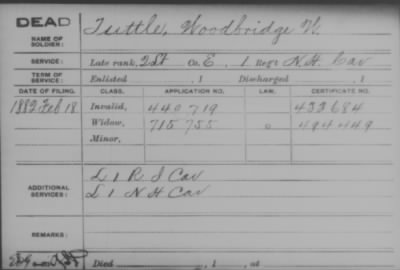 DEAD
NAME OF SOLDIER: Tuttle, Woodbridge W.
SERVICE: Late rank, 2d Lt Co. E, 1 Reg't N.H. Cav
TERM OF SERVICE: Enlisted , 1 Discharged , 1
DATE OF FILING. CLASS. APPLICATION NO. LAW. CERTIFICATE NO.
1882 Feb 18 Invalid, 440719 433684
Widow, 715755 494449
Minor,
ADDITIONAL SERVICES: L 1 R I Cav
L 1 N H Cav
REMARKS:
Died , 1 , at